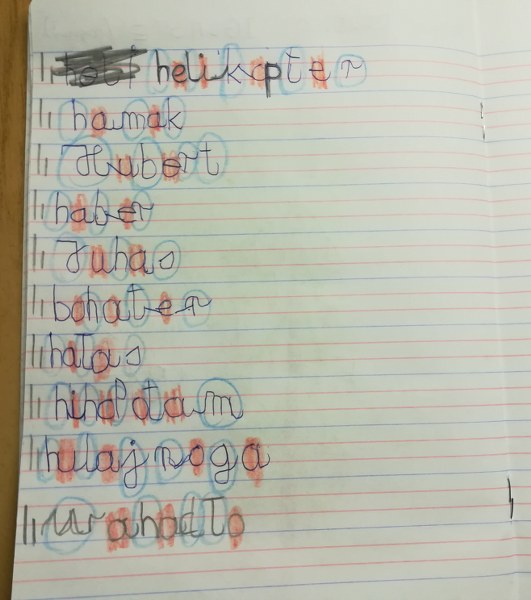 helikopter
hamak
Hubert
haber
Juhas
bohater
hałas
hulajnoga
Wahadło